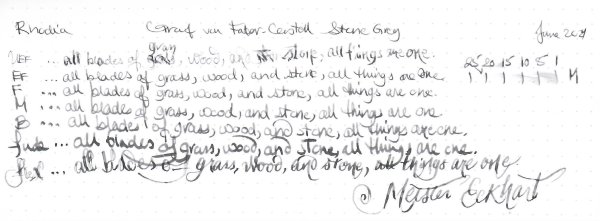 Rhodia Conraf van Faber-Cerstell Stone Grey June 2021
UEF ... all blades of grass, wood, and stone, all things are one. 25 20 15 10 5 1
EF ... all blades of grass, wood, and stone, all things are one. 1 1 1 1 1 1 M
F ... all blades of grass, wood, and stone, all things are one.
M ... all blades of grass, wood, and stone, all things are one.
B ... all blades of grass, wood, and stone, all things are one.
fude ... all blades of grass, wood, and stone, all things are one.
flex ... all blades of grass, wood, and stone, all things are one.
Meister Eckhart